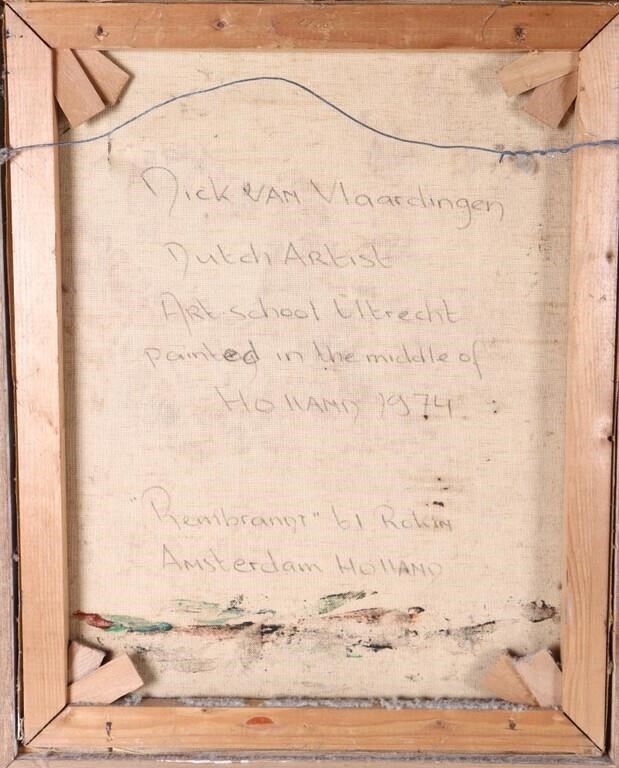 Dick van Vlaardingen
Dutch Artist
Art school Utrecht
painted in the middle of
Holland 1974
"Rembrandt" 61 Rokin
Amsterdam Holland